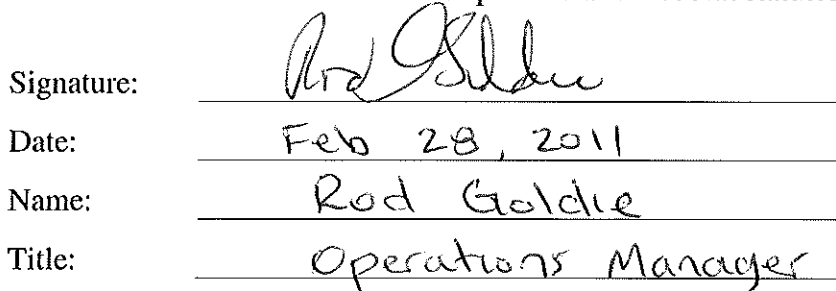 Signature: Rod Goldie
Date: Feb 28, 2011
Name: Rod Goldie
Title: Operations Manager